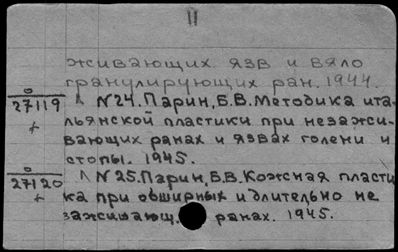 II
живающих язв и вяло
гранулирующих ран. 1944.
27119 ^ №24. Парин, Б.В. Методика ита-
+ льянской пластики при незажи-
вающих ранах и язвах голени и
стопы. 1945.
27120 ^ №25. Парин, Б.В. Кожная пласти
+ ка при обширных и длительно не
заживающ. ранах. 1945.